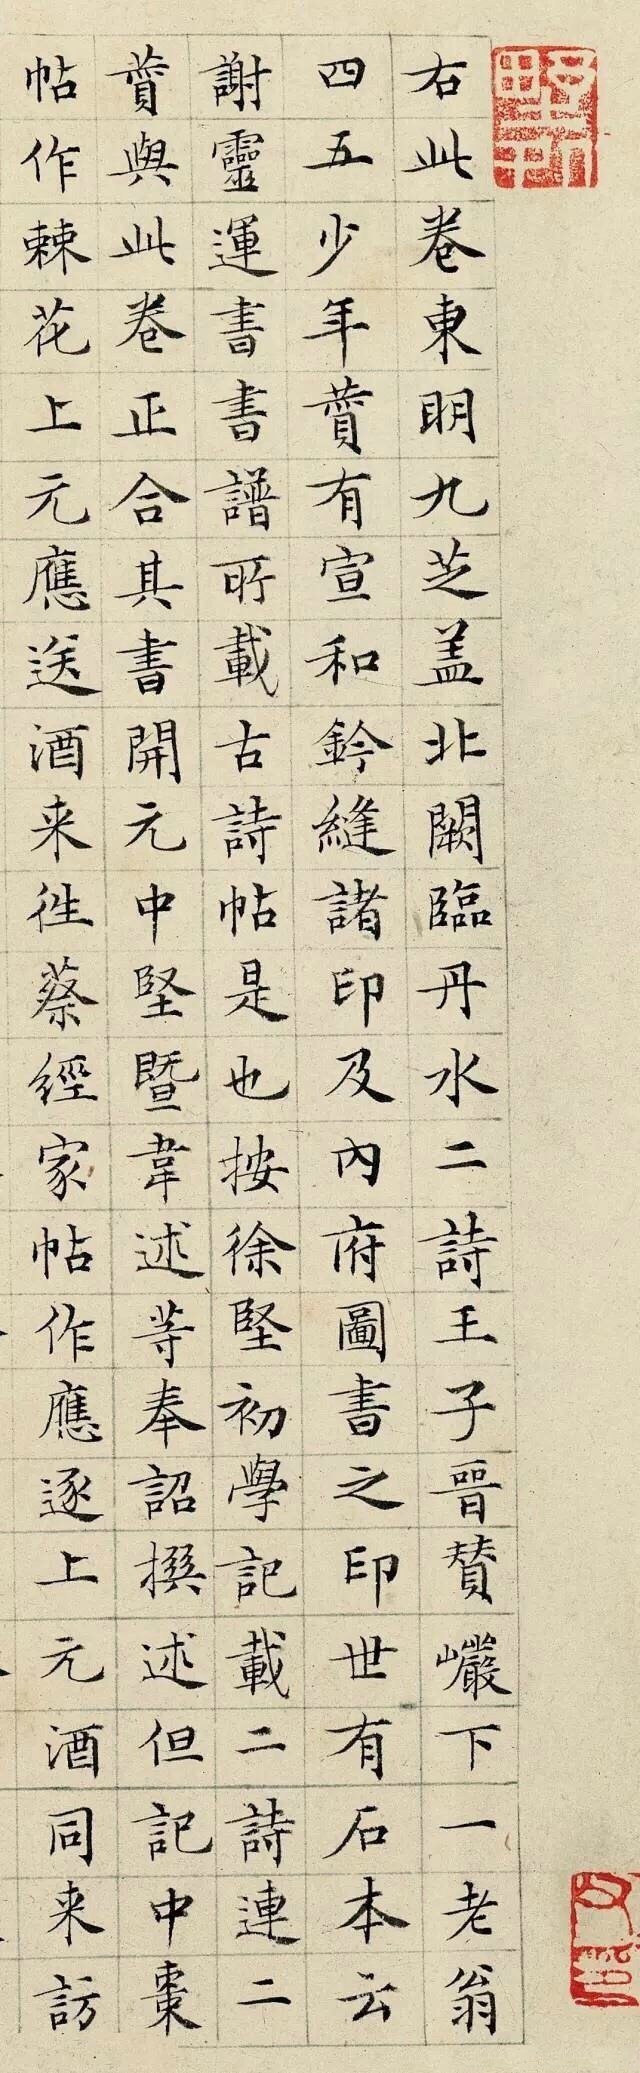 右此卷東明九芝盖北闕臨丹水二詩王子晉贊巗下一老翁
四五少年賛有宣和鈐縫諸印及內府圖書之印世有石本云
謝靈運書書譜所載古詩帖是也按徐堅初學記載二詩連二
賛與此卷正合其書開元中堅暨韋述等奉詔撰述但記中棗
帖作棘花上元應送酒来徃蔡經家帖作應逐上元酒同来訪